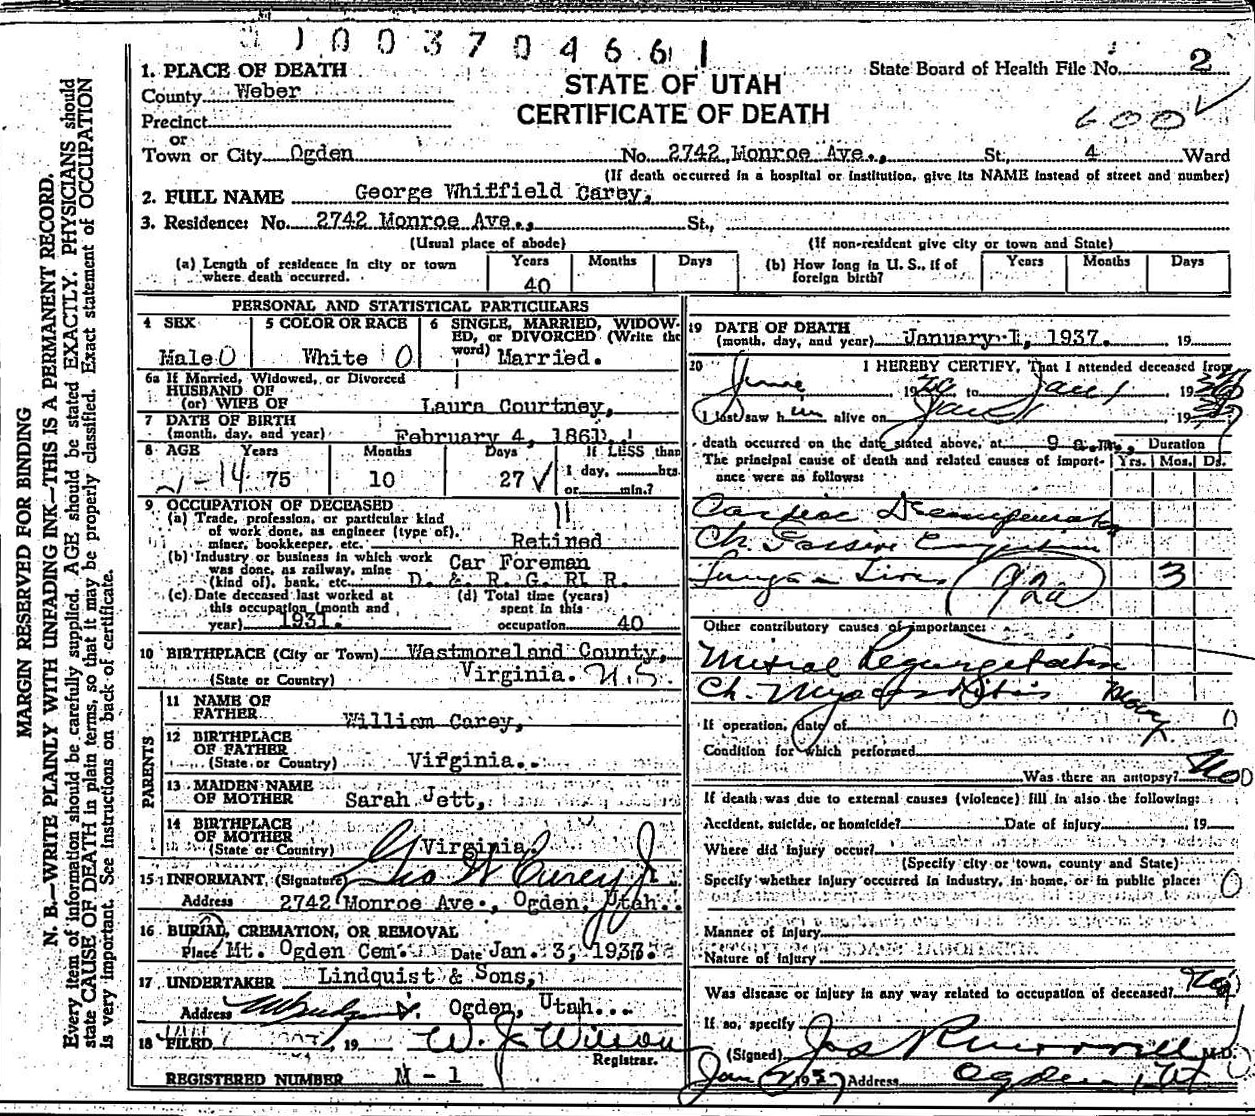 1003704661
1. PLACE OF DEATH
County Weber
Precinct
or
Town or City Ogden No. 2742 Monroe Ave., St., 4 Ward
STATE OF UTAH
CERTIFICATE OF DEATH
State Board of Health File No. 2
600
(If death occurred in a hospital or institution, give its NAME instead of street and number)
2. FULL NAME George Whitfield Carey,
3. Residence: No. 2742 Monroe Ave., St.,
(Usual place of abode) (If non-resident give city or town and State)
(a) Length of residence in city or town where death occurred. Years 40 Months Days
(b) How long in U. S., if of foreign birth? Years Months Days
PERSONAL AND STATISTICAL PARTICULARS
4 SEX Male 0
5 COLOR OR RACE White 0
6 SINGLE, MARRIED, WIDOWED, or DIVORCED (Write the word) Married.
6a If Married, Widowed, or Divorced
HUSBAND OF
(or) WIFE OF Laura Courtney,
7 DATE OF BIRTH
(month, day, and year) February 4, 1861.
8 AGE Years 75 Months 10 Days 27
If LESS than
1 day, hrs.
or min.?
9 OCCUPATION OF DECEASED
(a) Trade, profession, or particular kind
of work done, as engineer (type of),
miner, bookkeeper, etc. Retired
(b) Industry or business in which work
was done, as railway, mine
(kind of), bank, etc. Car Foreman
D. & R. G. R. R.
(c) Date deceased last worked at
this occupation (month and
year) 1931.
(d) Total time (years)
spent in this
occupation 40
10 BIRTHPLACE (City or Town) Westmoreland County,
(State or Country) Virginia. U.S.
PARENTS
11 NAME OF
FATHER William Carey,
12 BIRTHPLACE
OF FATHER
(State or Country) Virginia..
13 MAIDEN NAME
OF MOTHER Sarah Jett,
14 BIRTHPLACE
OF MOTHER
(State or Country) Virginia.
15 INFORMANT, (Signature) Geo W Carey Jr.
Address 2742 Monroe Ave., Ogden, Utah..
16 BURIAL, CREMATION, OR REMOVAL
Place Mt. Ogden Cem. Date Jan. 3, 1937.
17 UNDERTAKER Lindquist & Sons,
Address Ogden, Utah...
18 FILED 19 W. J. Wilson
Registrar.
REGISTERED NUMBER M-1
19 DATE OF DEATH
(month, day, and year) January 1, 1937. 19
20 I HEREBY CERTIFY, That I attended deceased from
June 19 to Jan 1 19
I last saw h im alive on Jan 1 19
death occurred on the date stated above, at 9 a.m.,
The principal cause of death and related causes of importance were as follows:
Duration
Yrs. Mos. Ds.
Cardiac Decompensation
Ch. Passive Congestion
Lungs & Liver 92a 3
Other contributory causes of importance:
Mitral Regurgitation
Ch. Myocarditis Many
If operation, date of
Condition for which performed
Was there an autopsy? No
If death was due to external causes (violence) fill in also the following:
Accident, suicide, or homicide? Date of injury 19
Where did injury occur?
(Specify city or town, county and State)
Specify whether injury occurred in industry, in home, or in public place:
Manner of Injury
Nature of Injury
Was disease or injury in any way related to occupation of deceased?
If so, specify
(Signed) M.D.
Jan 2 1937 Address Ogden, Ut
MARGIN RESERVED FOR BINDING
N. B.—WRITE PLAINLY WITH UNFADING INK—THIS IS A PERMANENT RECORD.
Every item of information should be carefully supplied. AGE should be stated EXACTLY. PHYSICIANS should
state CAUSE OF DEATH in plain terms, so that it may be properly classified. Exact statement of OCCUPATION
is very important. See instructions on back of certificate.